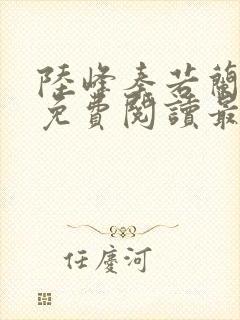 陸峰秦若蘭
免費閱讀最
任慶河